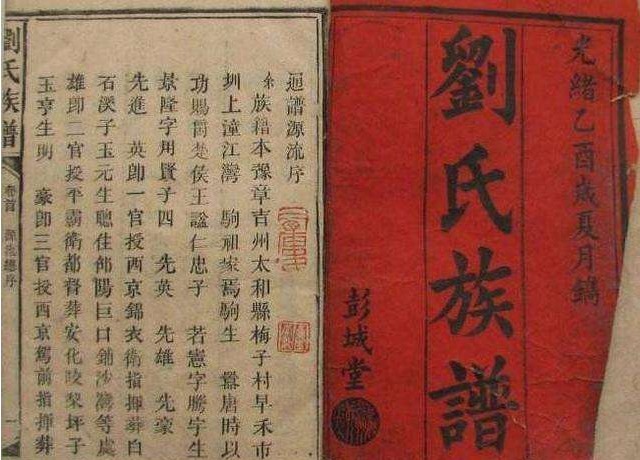 光緒乙酉歲夏月鐫
劉氏族譜
彭城堂
迴譜源流序
余族籍本豫章吉州太和縣梅子村早禾市
圳上潼江灣 駒祖家焉駒生 唐時以
功賜爵楚侯王謚仁忠子 若憲字騰宇生
景隆字用賢子四 先英 先雄 先豪
先進 英卽一官授西京錦衣衛指揮葬白
石溪子玉元生聰住邵陽巨口鋪沙灣等處
雄卽二官授平霸衛都督葬安化坪子
玉亨生明 豪卽三官授西京駕前指揮葬
劉氏族譜 卷首 源流總序 一